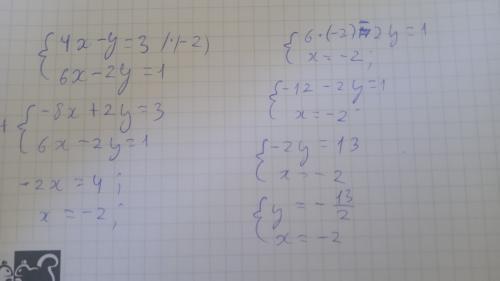 { 4x - y = 3 | · (-2)
{ 6x - 2y = 1
+ { -8x + 2y = 3
{ 6x - 2y = 1
-2x = 4;
x = -2;
{ 6 · (-2) - 2y = 1
{ x = -2;
{ -12 - 2y = 1
{ x = -2
{ -2y = 13
{ x = -2
{ y = - 13/2
{ x = -2